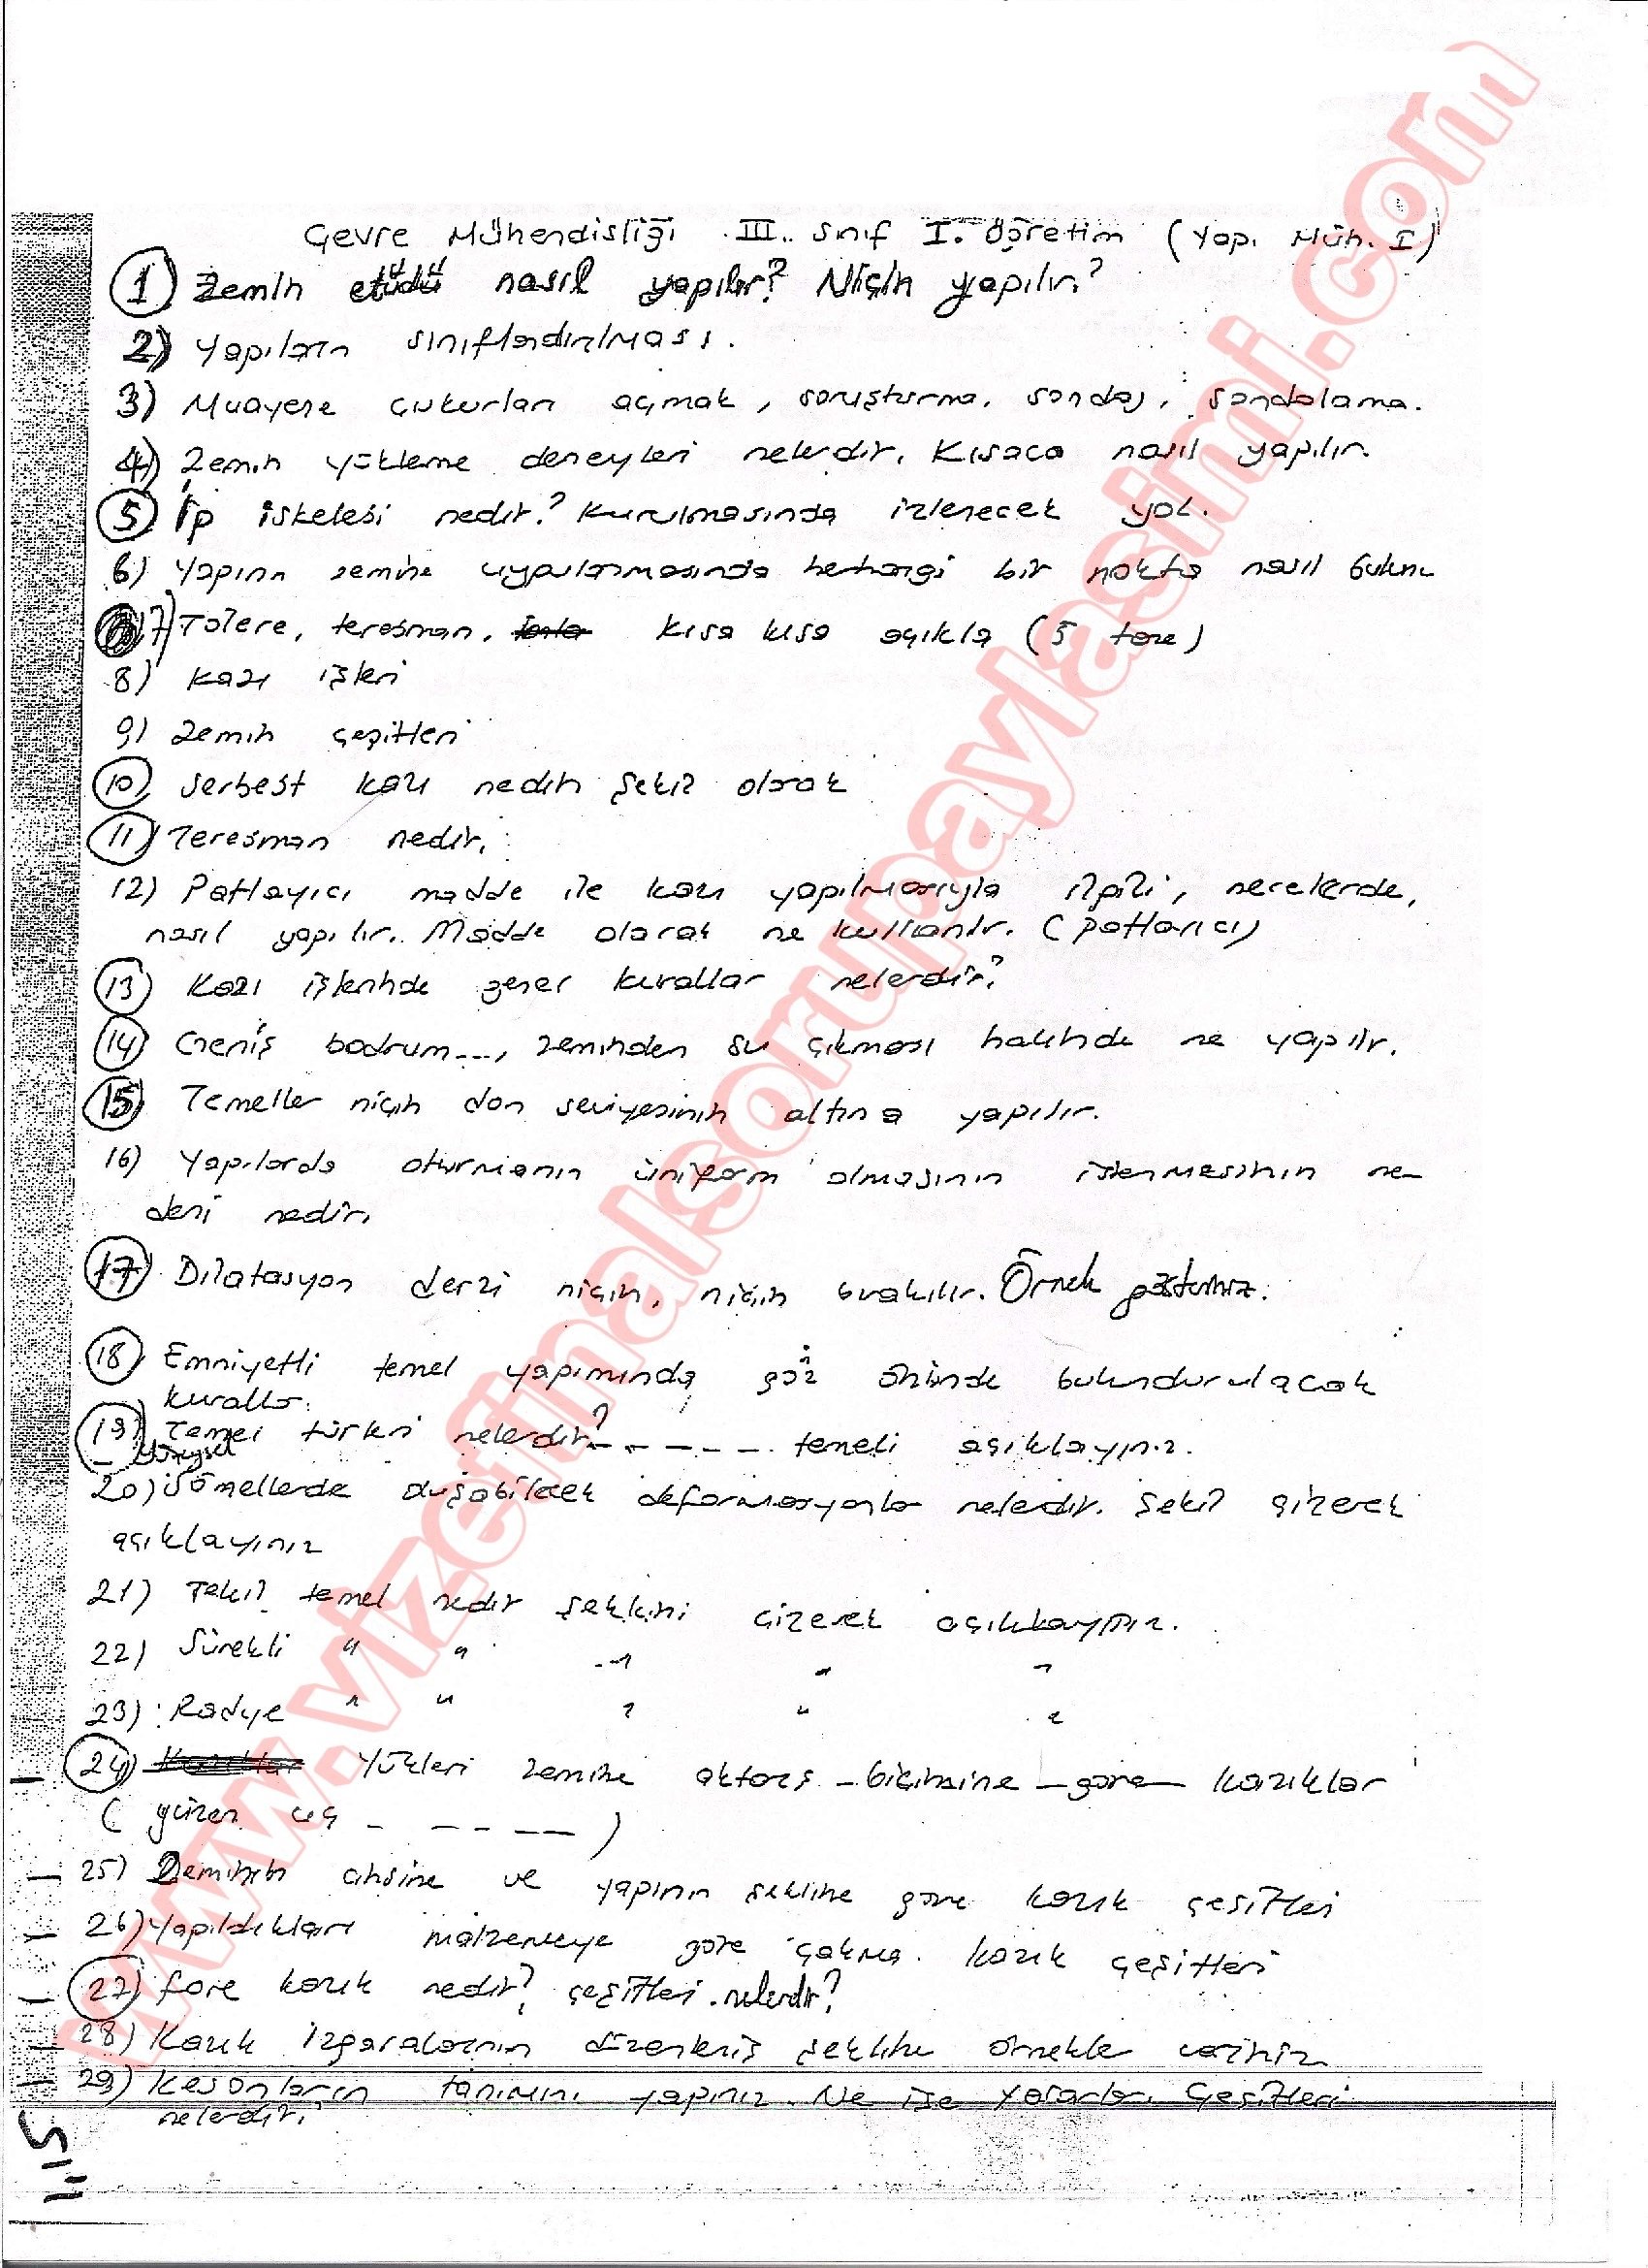 Çevre Mühendisliği III. sınıf I. öğretim (Yapı Müh. I)
1) Zemin etüdü nasıl yapılır? Niçin yapılır?
2) Yapıların sınıflandırılması.
3) Muayene çukurları açmak, soruşturma, sondaj, sondalama.
4) Zemin yükleme deneyleri nelerdir. Kısaca nasıl yapılır.
5) İp iskelesi nedir? Kurulmasında izlenecek yol.
6) Yapının zemine uygulanmasında herhangi bir nokta nasıl bulunu
7) Tolere, teresman, kısa kısa açıkla (5 tane)
8) Kazı işleri
9) Zemin çeşitleri
10) Serbest kazı nedir şekil olarak
11) Teresman nedir.
12) Patlayıcı madde ile kazı yapılmasıyla ilgili, nerelerde,
nasıl yapılır. Madde olarak ne kullanılır. (patlayıcı)
13) Kazı işlerinde genel kurallar nelerdir?
14) Geniş bodrum..., zeminden su çıkması halinde ne yapılır.
15) Temeller niçin don seviyesinin altına yapılır.
16) Yapılarda oturmanın üniform olmasının istenmesinin ne-
deni nedir.
17) Dilatasyon derzi niçin, niçin bırakılır. Örnek gösteriniz.
18) Emniyetli temel yapımında göz önünde bulundurulacak
kurallar.
19) Temel türleri nelerdir? - - - - - - temeli açıklayınız.
- Yüzeysel
20) Sömellerde oluşabilecek deformasyonlar nelerdir. Şekil çizerek
açıklayınız
21) Tekil temel nedir şeklini çizerek açıklayınız.
22) Sürekli " " " " "
23) Radye " " " " "
24) Yükleri zemine aktarış - biçimine - göre kazıklar
( yüzen uç - - - - - )
25) Zeminin cinsine ve yapının şekline göre kazık çeşitleri
26) Yapıldıkları malzemeye göre çakma kazık çeşitleri
27) fore kazık nedir? çeşitleri nelerdir?
28) Kazık ızgaralarının düzenleniş şekline örnekler veriniz
29) Kesonların tanımını yapınız. Ne işe yararlar. Çeşitleri
nelerdir.
www.vizefinalsorupaylasimi.com